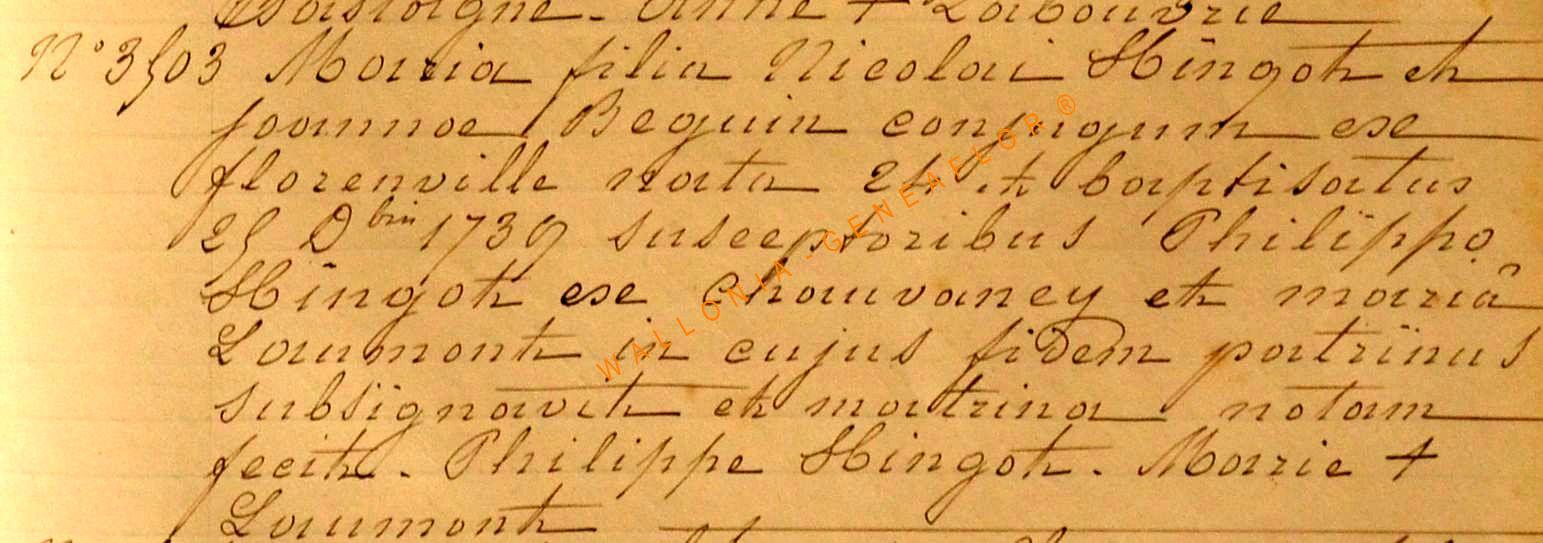 Gastaigne - Anne + Labouvrie
N° 3503 Maria filia Nicolai Hingot et
joannoe Beguin conjugum exe
florenville nata 24 et baptisatus
25 Dbin 1739 susceptoribus Philippo
Hingot exe Chauvancy et mariâ
Laumont in cujus fidem patrinus
subsignavit et matrina notam
fecit. Philippe Hingot. Marie +
Laumont
WALLONIA-GENEAFLOR®